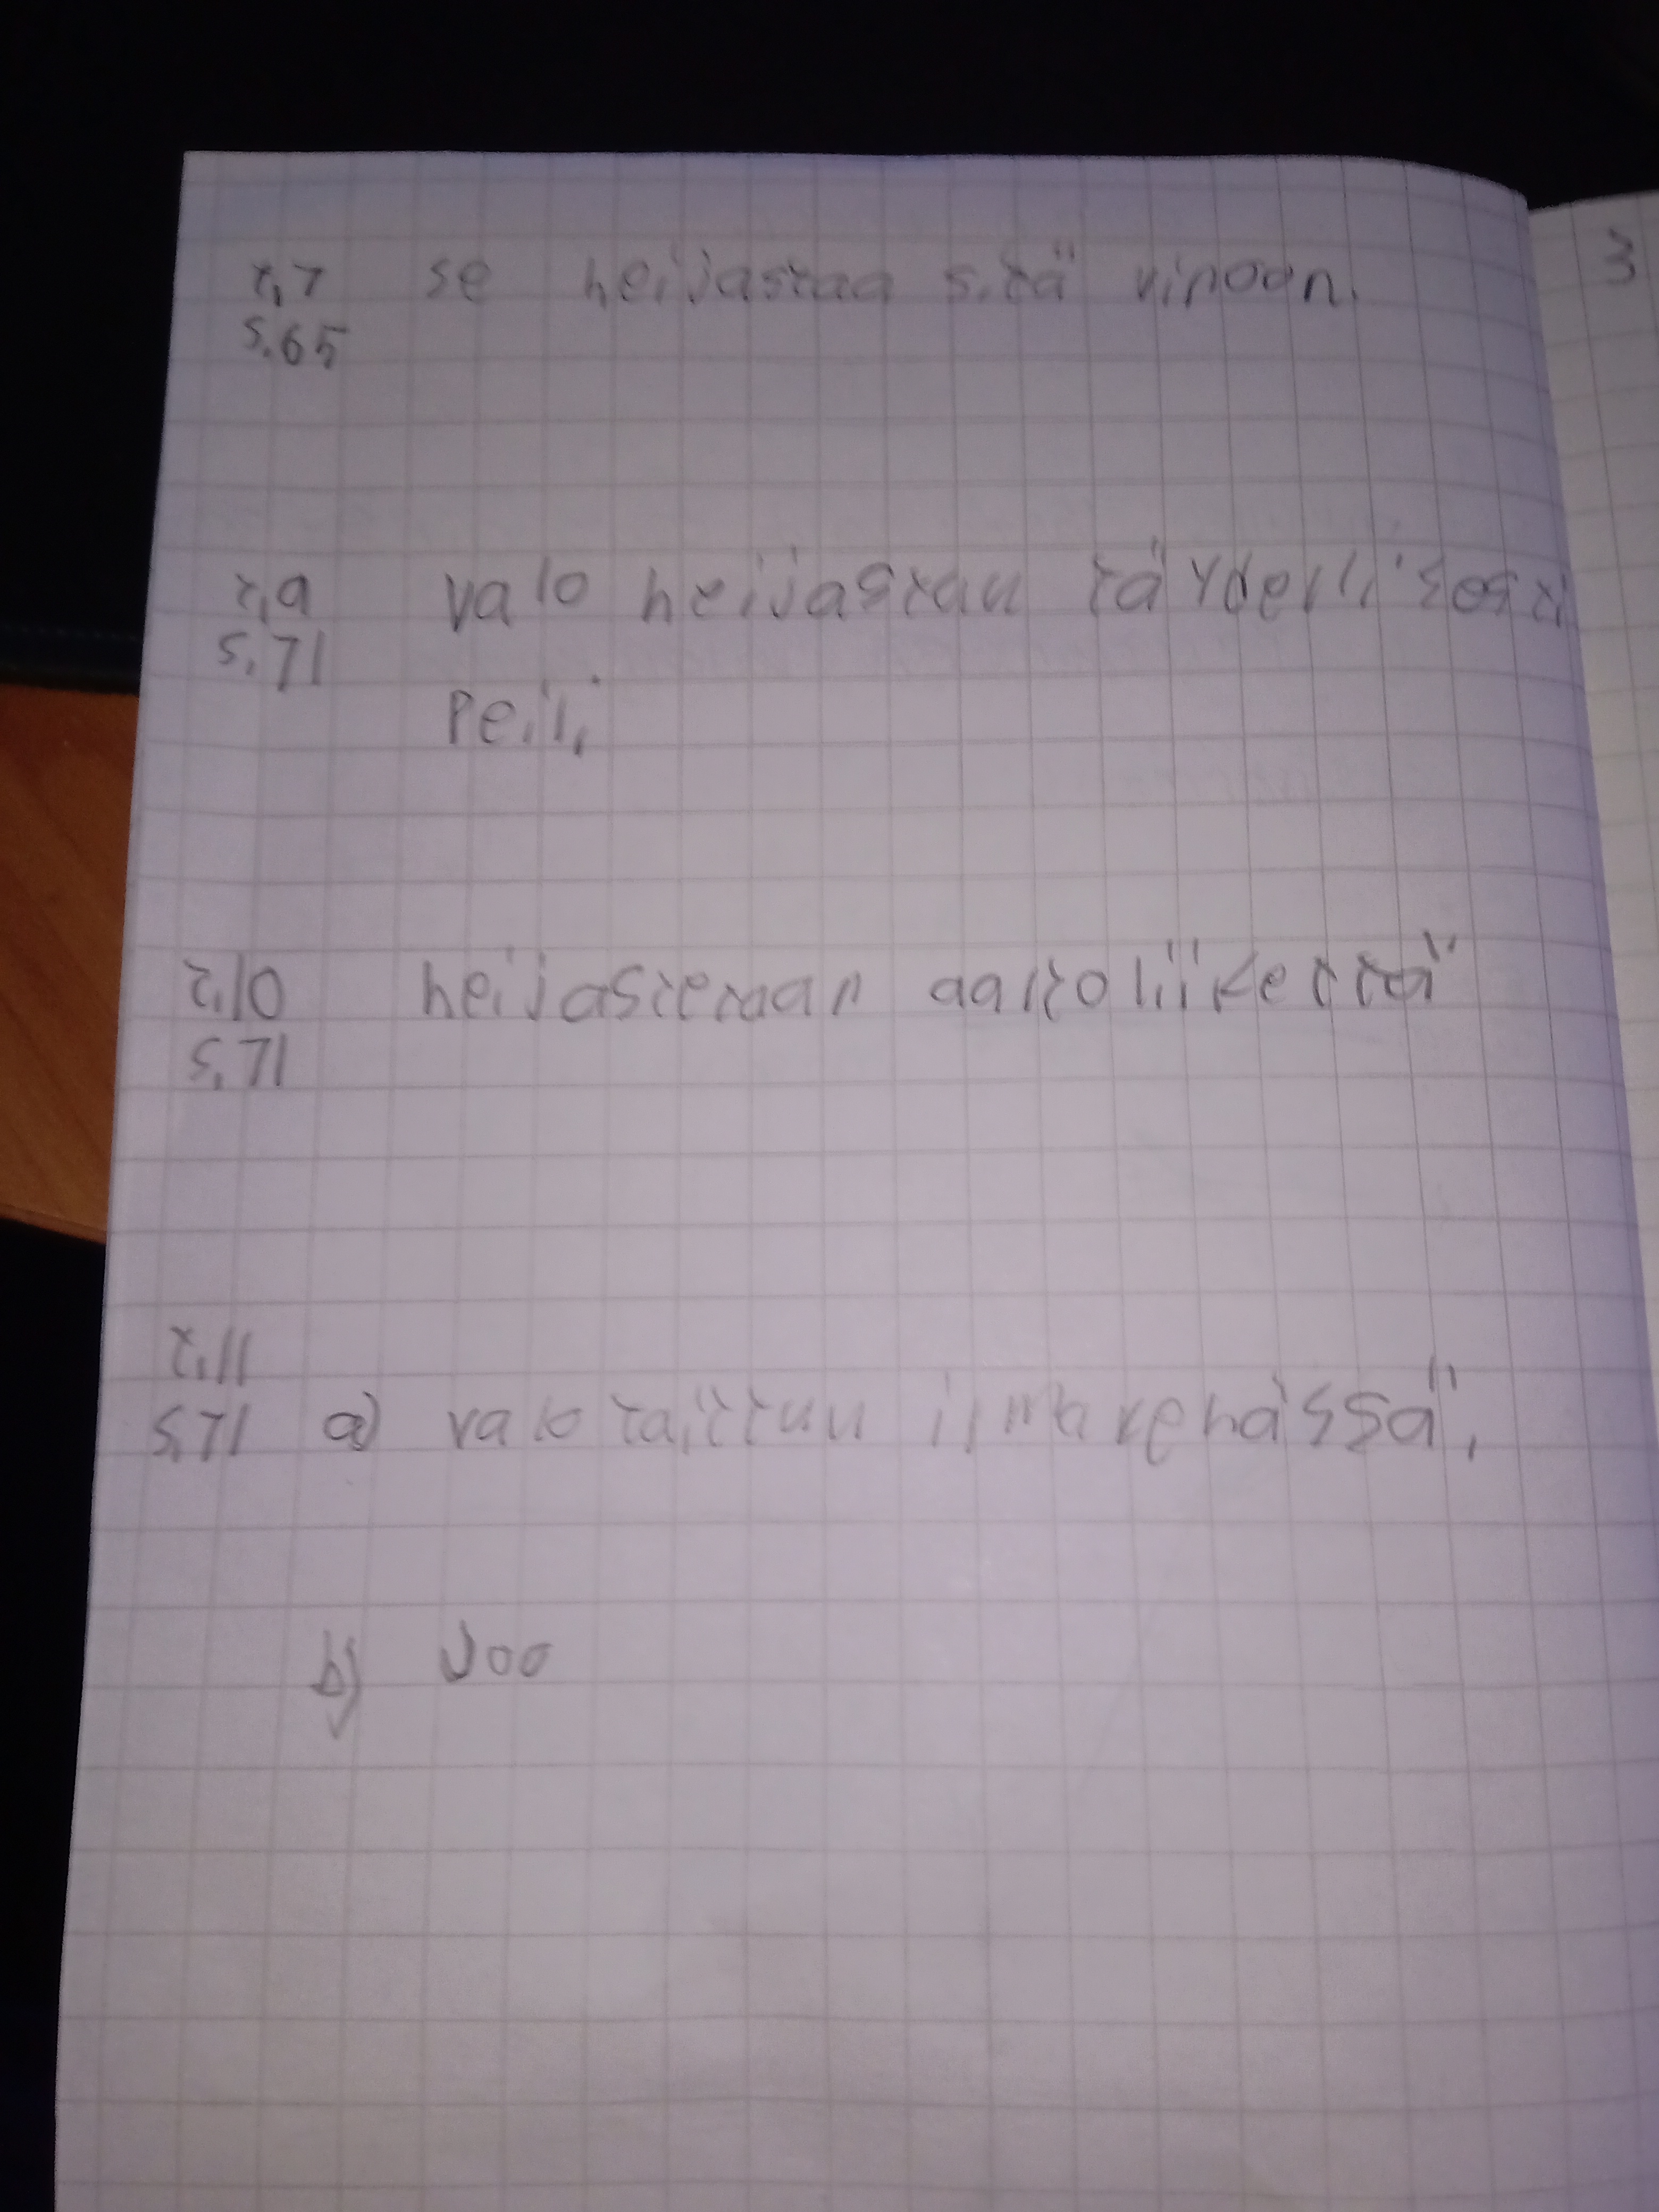 t.7 se heijastaa sitä vinoon.
s.65
t.9 valo heijastuu täydellisesti
s.71
peili
t.10 heijastetaan aaltoliikettä
s.71
t.11
s.71 a) valo taittuu ilmakehässä.
b) Joo
3